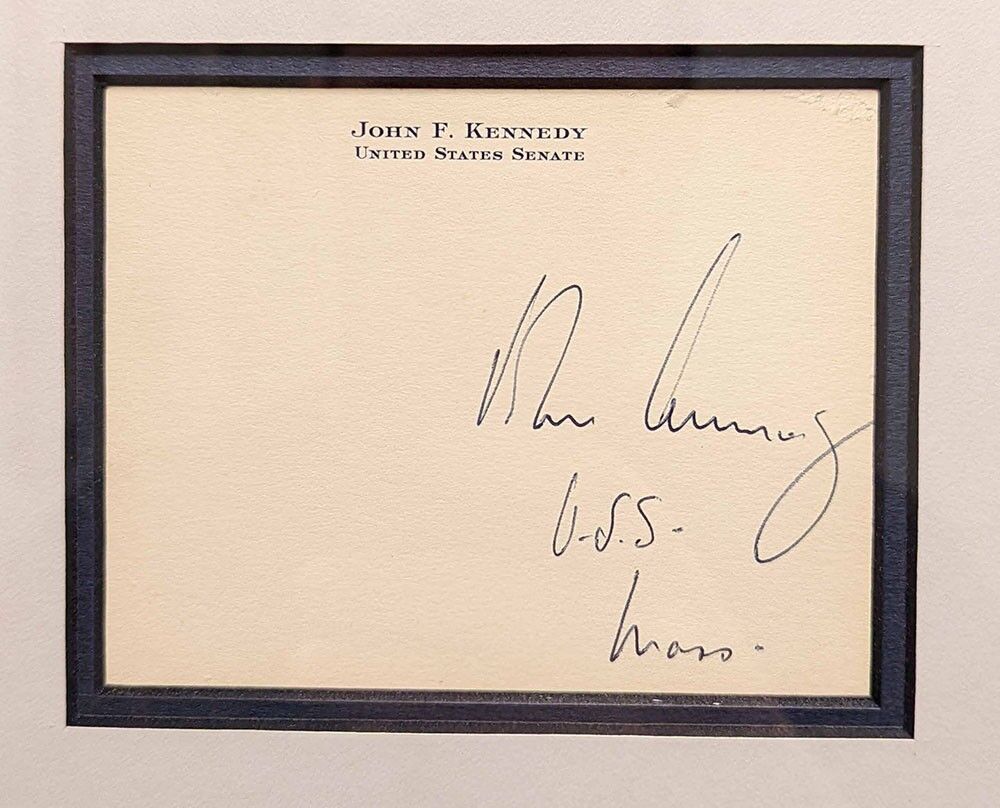 John F. Kennedy
United States Senate
John Kennedy
U.S.S.
Mass.